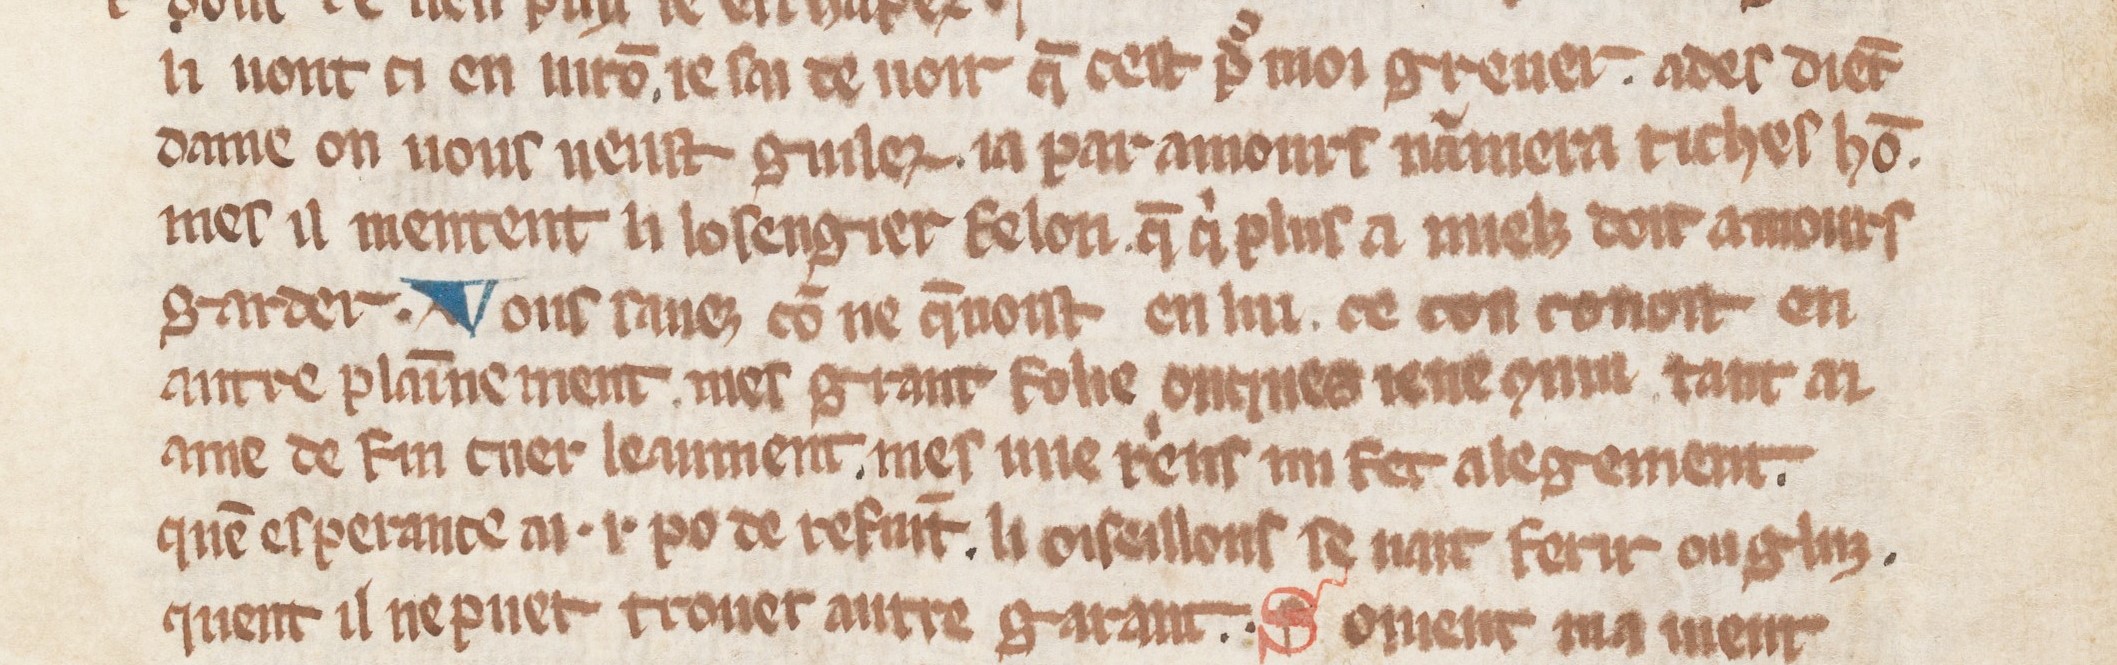 li uont ci en uirō. ie sai de uoir q̄ cest p̄ moi greuer. ades dient̄
dame on uous ueust guiler. ia par amours nāmera riches hō.
mes il mentent li losengier felon. q̄ qͥ plus a mielz doit amours
garder. Vous sauez cō ne q̄noist en lui. ce con conoist en
autre plain̄nement. mes grant folie onques iene ꝯnui tant ai
ame de fin cuer leaument. mes une riens mi fet alegement.
quē esperance ai .i. po de refuit̄. li oiseillons se uait ferir ou gluz.
quent il nepuet trouer autre garant. Soment ma ment